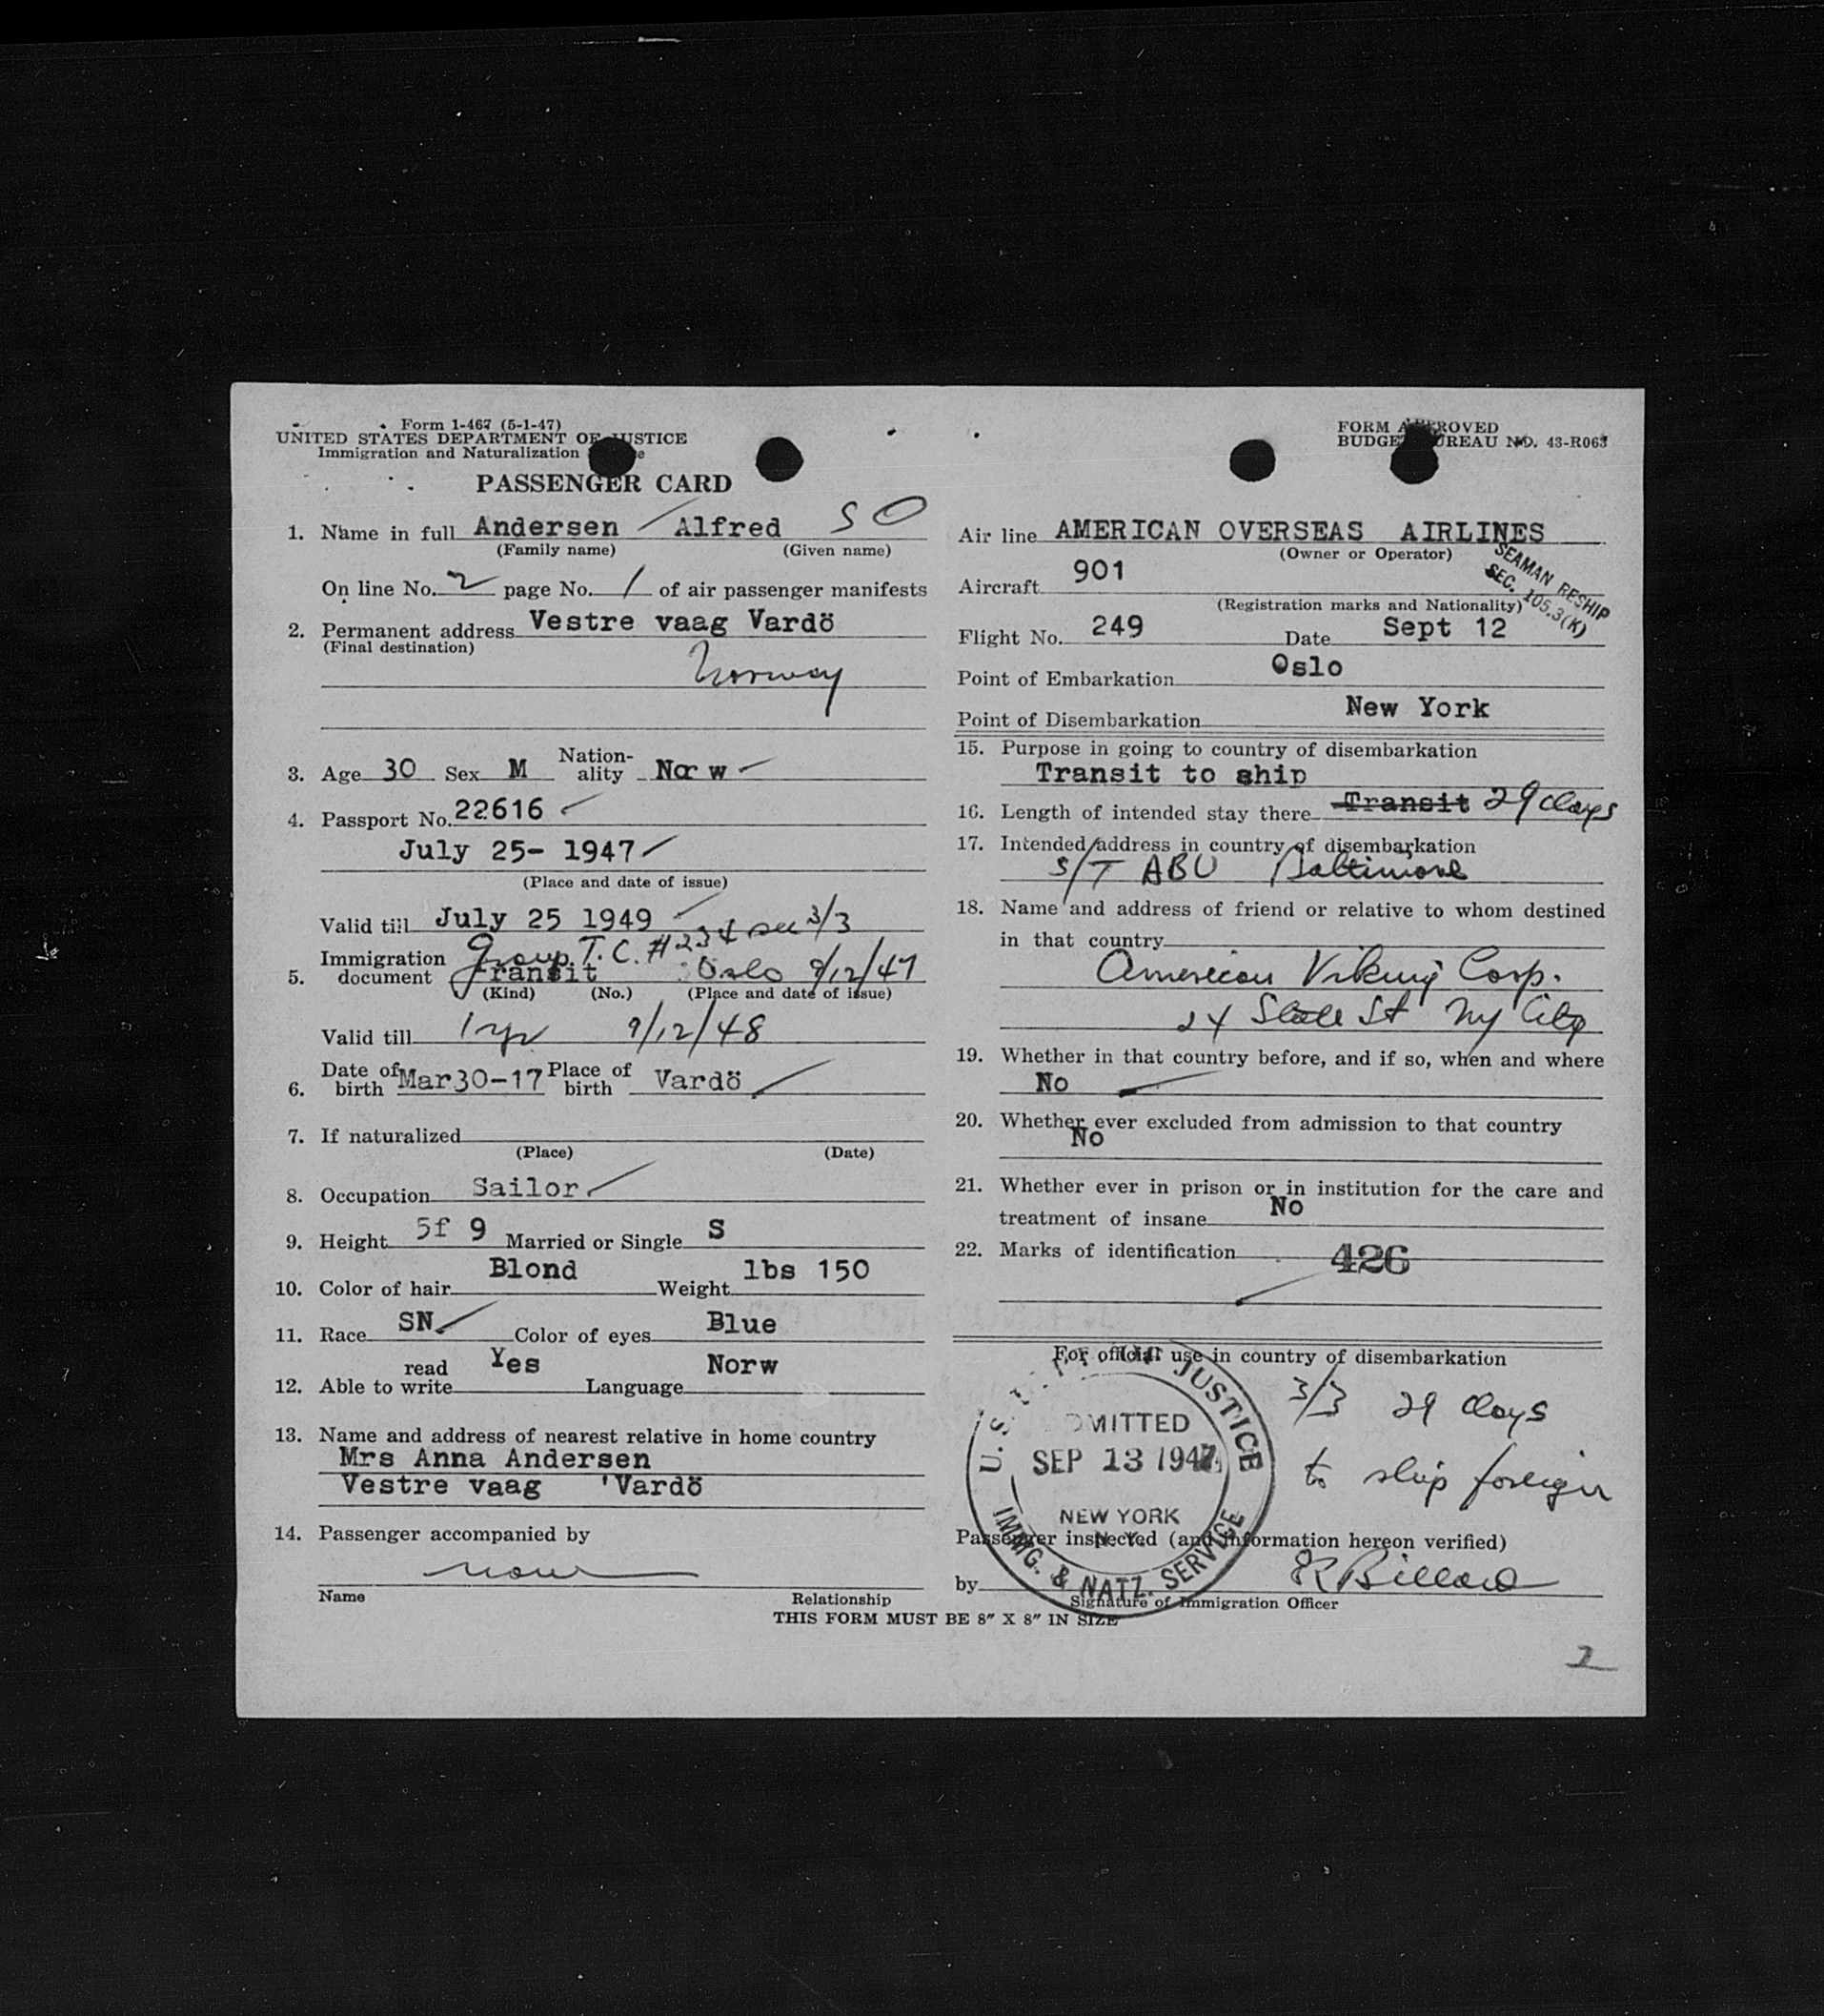 Form I-467 (5-1-47)
UNITED STATES DEPARTMENT OF JUSTICE
Immigration and Naturalization
PASSENGER CARD
1. Name in full Andersen Alfred SO
(Family name) (Given name)
On line No. 2 page No. 1 of air passenger manifests
2. Permanent address Vestre vaag Vardö
(Final destination)
Norway
3. Age 30 Sex M Nation-ality Norw
4. Passport No. 22616
July 25- 1947
(Place and date of issue)
Valid till July 25 1949
Group T.C. #234 sec 3/3
5. Immigration document Transit Oslo 9/12/47
(Kind) (No.) (Place and date of issue)
Valid till 1 yr 9/12/48
6. Date of birth Mar 30-17 Place of birth Vardö
7. If naturalized
(Place) (Date)
8. Occupation Sailor
9. Height 5f 9 Married or Single S
10. Color of hair Blond Weight lbs 150
11. Race SN Color of eyes Blue
12. Able to read write Yes Language Norw
13. Name and address of nearest relative in home country
Mrs Anna Andersen
Vestre vaag 'Vardö
14. Passenger accompanied by
none
Name Relationship
FORM APPROVED
BUDGET BUREAU NO. 43-R063
Air line AMERICAN OVERSEAS AIRLINES
(Owner or Operator)
SEAMAN RESHIP
SEC. 105.3(K)
Aircraft 901
(Registration marks and Nationality)
Flight No. 249 Date Sept 12
Point of Embarkation Oslo
Point of Disembarkation New York
15. Purpose in going to country of disembarkation
Transit to ship
16. Length of intended stay there Transit 29 days
17. Intended address in country of disembarkation
S/T ABU Baltimore
18. Name and address of friend or relative to whom destined
in that country
American Viking Corp.
24 State St NY City
19. Whether in that country before, and if so, when and where
No
20. Whether ever excluded from admission to that country
No
21. Whether ever in prison or in institution for the care and
treatment of insane No
22. Marks of identification 426
For official use in country of disembarkation
3/3 29 days
to ship foreign
U.S. JUSTICE
ADMITTED
SEP 13 1947
NEW YORK
N.Y.
IMMG. & NATZ. SERVICE
Passenger inspected (and information hereon verified)
by Billard
Signature of Immigration Officer
THIS FORM MUST BE 8" X 8" IN SIZE
2